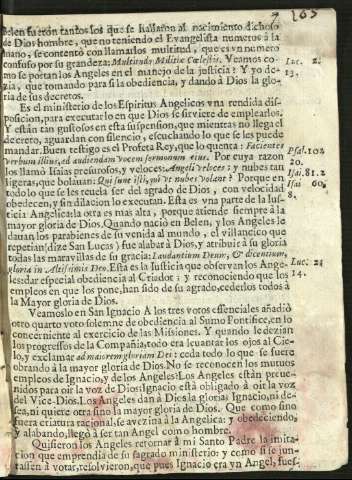 103
Belen fueron tantos los que se hallaron al nacimiento dichoso
de Dios hombre, que no teniendo el Evangelista numeros à la
mano, se contentò con llamarlos multitud, que es vn numero
confuso por su grandeza: Multitudo Militiæ Cœlestis. Veamos co-
mo se portan los Angeles en el manejo de la justicia? Y yo de-
zia, que tomando para si la obediencia, y dando à Dios la glo-
ria de sus decretos.
Luc. 2.
13.
Es el ministerio de los Espiritus Angelicos vna rendida dis-
posicion, para executar lo en que Dios se sirviere de emplearlos;
Y estàn tan gustosos en esta suspension, que mientras no llega el
decreto, aguardan con silencio, escuchando lo que se les puede
mandar. Buen testigo es el Profeta Rey, que lo quenta: Facientes
verbum illius, ad audiendam vocem sermonum eius. Por cuya razon
los llamò Isaias presurosos, y veloces: Angeli veloces; y nubes tan
ligeras, que bolauan: Qui sunt isti, qui vt nubes volant? Porque en
todo lo que se les revela ser del agrado de Dios, con velocidad
obedecen, y sin dilacion lo executan. Esta es vna parte de la Jus-
ticia Angelica: la otra es mas alta, porque atiende siempre à la
mayor gloria de Dios. Quando naciò en Belen, y los Angeles le
dauan los parabienes de su venida al mundo, el villancico que
repetian (dize San Lucas) fue alabar à Dios, y atribuir à su gloria
todas las maravillas de su gracia: Laudantium Deum, & dicentium,
gloria in Altissimis Deo. Esta es la Justicia que observan los Ange-
les: dar especial obediencia al Criador; y reconociendo que los
empleos en que los pone, han sido de su agrado, cederlos todos à
la Mayor gloria de Dios.
Psal. 102
20.
Isai. 8 1. 2
Isai 60.
8.
Luc: 2
14.
Veamoslo en San Ignacio A los tres votos essenciales añadiò
otro quarto voto solemne de obediencia al Sumo Pontifice, en lo
concerniente al exercicio de las Missiones. Y quando le dezian
los progressos de la Compañia, todo era leuantar los ojos al Cie-
lo, y exclamar ad maiorem gloriam Dei: ceda todo lo que se fuere
obrando à la mayor gloria de Dios. No se reconocen los mutuos
empleos de Ignacio, y de los Angeles? Los Angeles estàn preue-
nidos para oir la voz de Dios: Ignacio està obligado à oir la voz
del Vice-Dios. Los Angeles dan à Dios la gloria: Ignacio, ni de-
sea, ni quiere otra sino la mayor gloria de Dios. Que como sino
fuera criatura racional, se avezina à la Angelica; y obedeciendo,
y alabando, llegò à ser tan Angel como hombre.
Quisieron los Angeles retornar à mi Santo Padre la imita-
cion que emprendia de su sagrado ministerio: y como si se jun-
taran à votar, resolvieron, que pues Ignacio era vn Angel, fues-